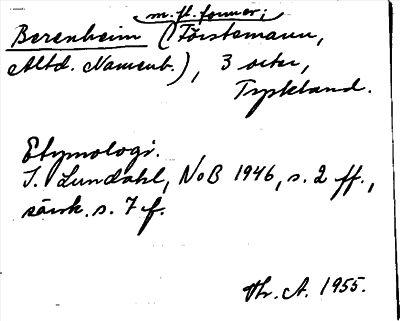 m. fl. former;
Berenheim (Förstemann,
Altd. Namenb.), 3 orter,
Tyskland.
Etymologi.
I. Lundahl, NoB 1946, s. 2 ff.,
särsk. s. 7 f.
Thr. A. 1955.